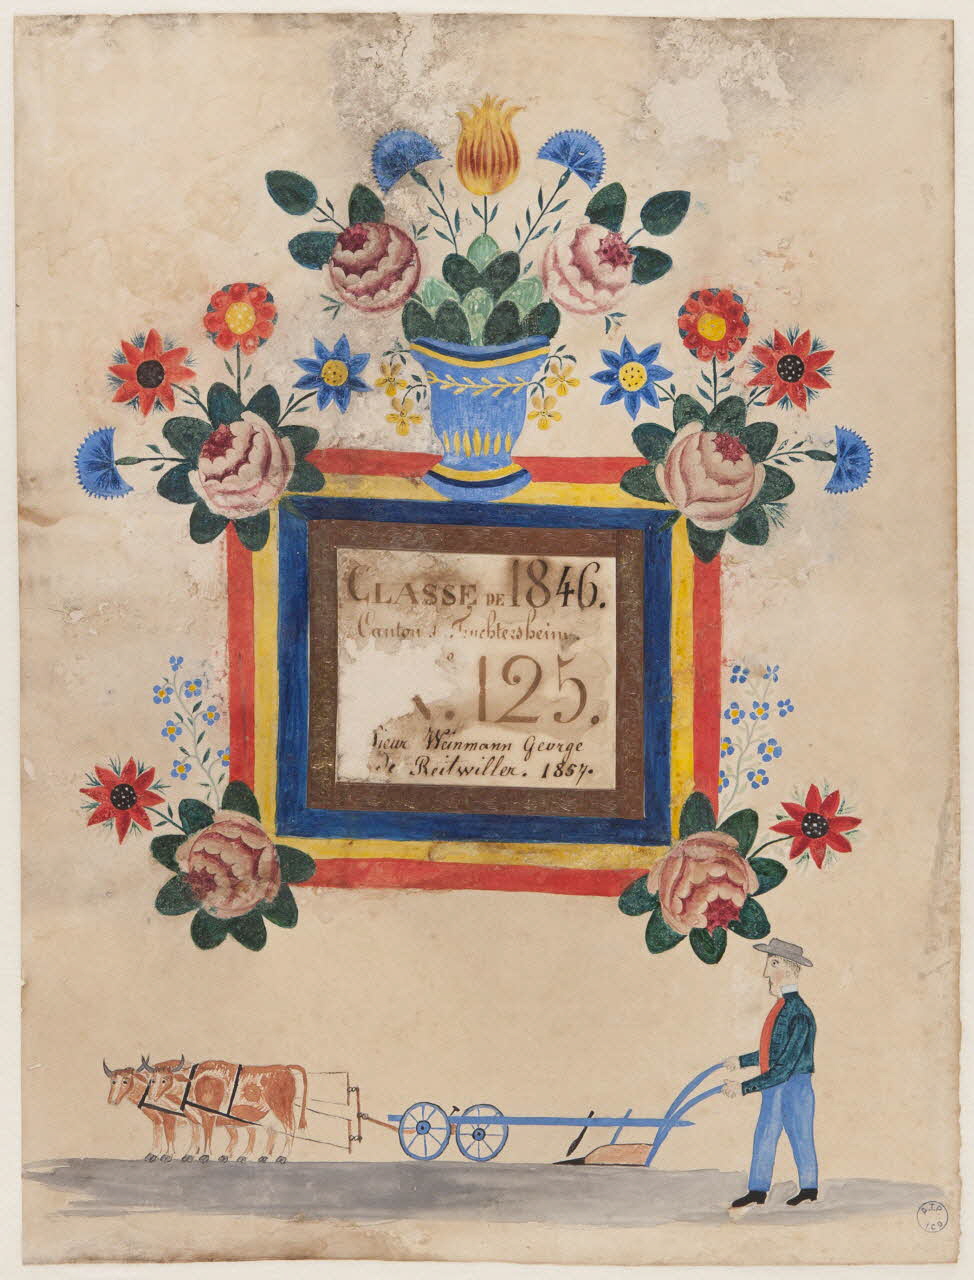 CLASSE DE 1846.
Canton d Truchtersheim
N.º 125.
Sieur Weinmann George
de Reitwiller. 1857.